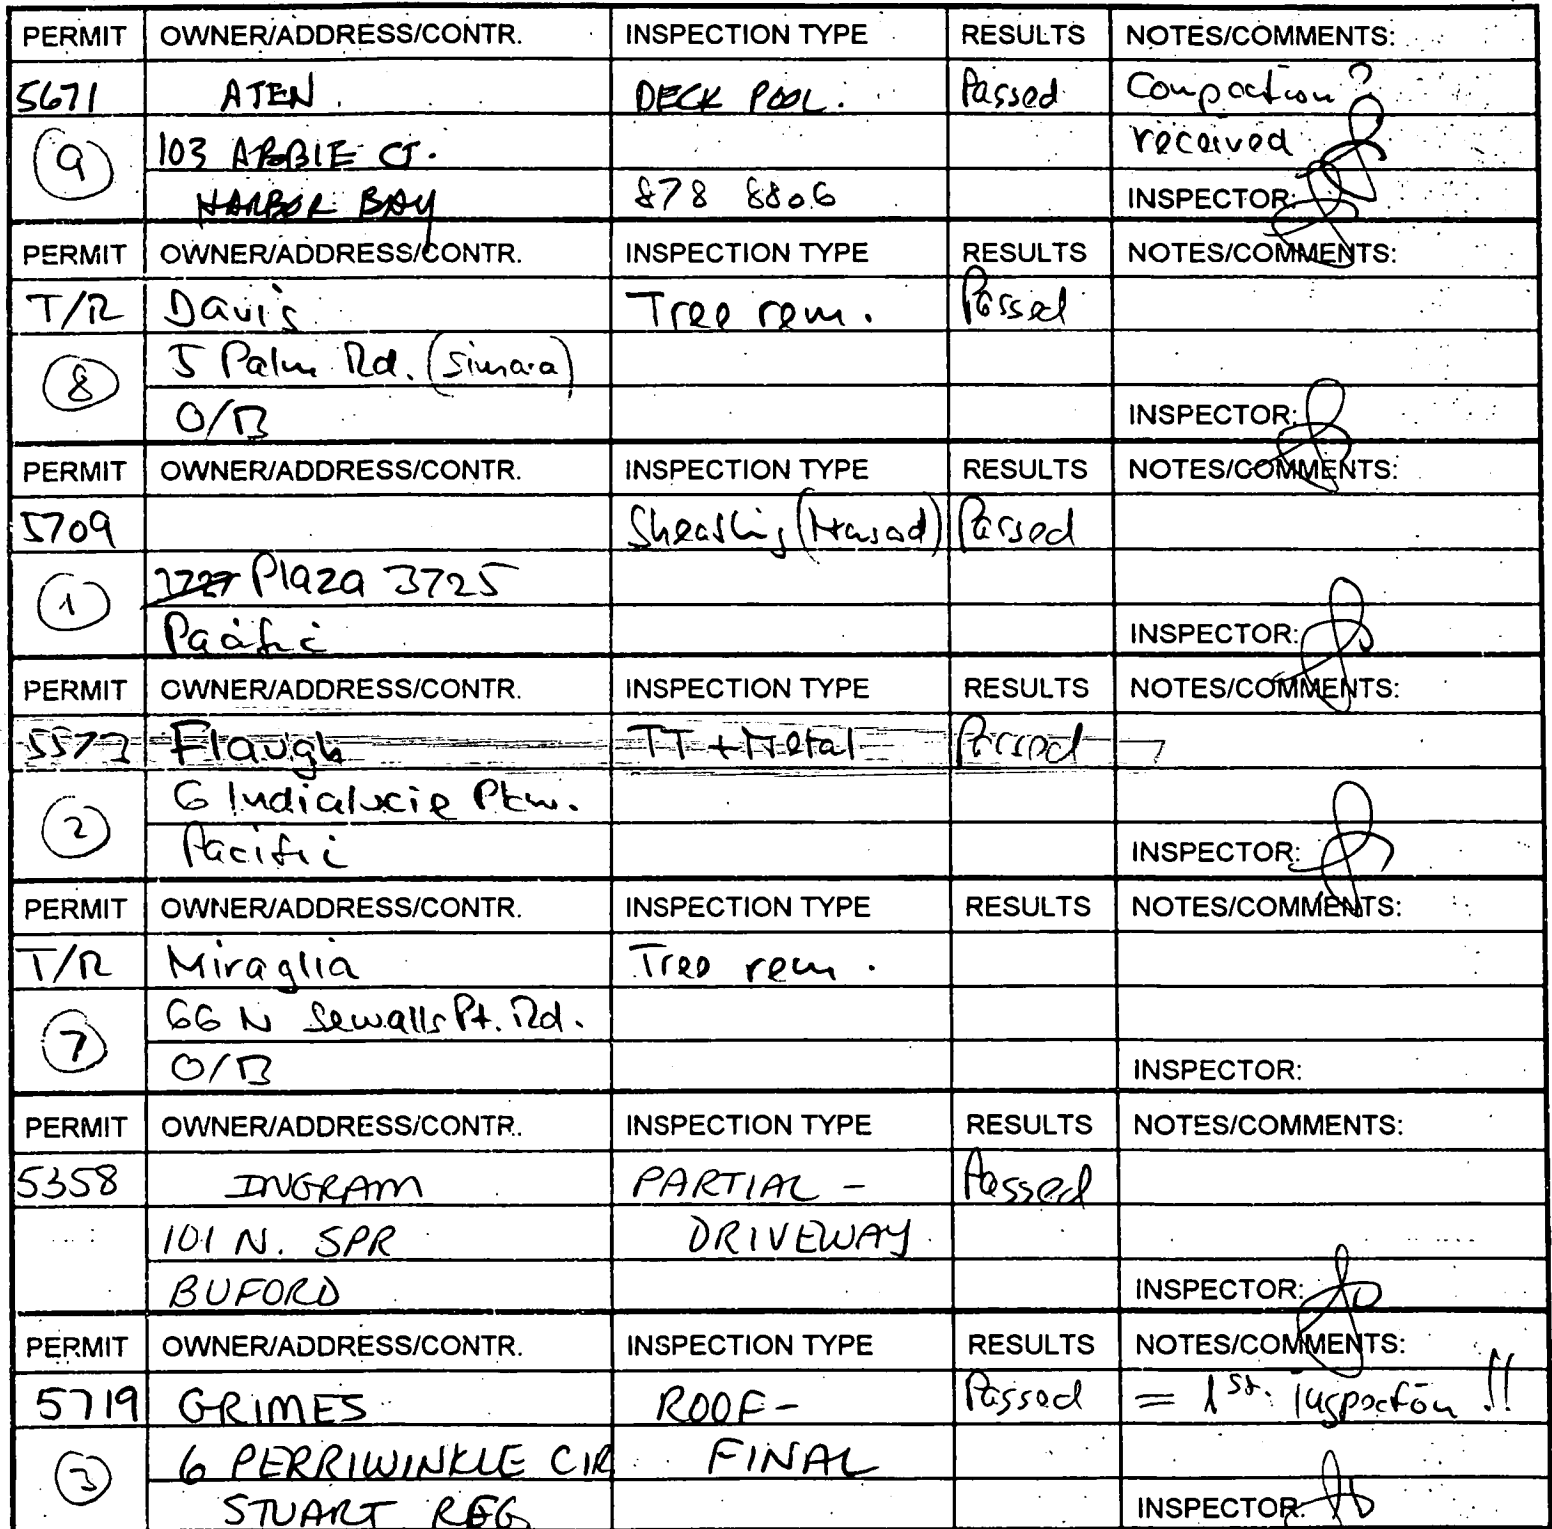 PERMIT OWNER/ADDRESS/CONTR. INSPECTION TYPE RESULTS NOTES/COMMENTS:
5671 ATEN. DECK POOL. Passed Compaction ?
9 103 ABBIE CT. received
HARBOR BAY 878 8806 INSPECTOR:
PERMIT OWNER/ADDRESS/CONTR. INSPECTION TYPE RESULTS NOTES/COMMENTS:
T/R Davis Tree rem. Passed
8 5 Palm Rd. (Simara)
O/B INSPECTOR:
PERMIT OWNER/ADDRESS/CONTR. INSPECTION TYPE RESULTS NOTES/COMMENTS:
5709 Passed
1 Plaza 3725
Pacific INSPECTOR:
PERMIT OWNER/ADDRESS/CONTR. INSPECTION TYPE RESULTS NOTES/COMMENTS:
5573 Flaugh TT + Metal Passed
2 6 Indialucie Pkw.
Pacific INSPECTOR:
PERMIT OWNER/ADDRESS/CONTR. INSPECTION TYPE RESULTS NOTES/COMMENTS:
T/R Miraglia Tree rem.
7 66 N Sewalls Pt. Rd.
O/B INSPECTOR:
PERMIT OWNER/ADDRESS/CONTR. INSPECTION TYPE RESULTS NOTES/COMMENTS:
5358 INGRAM PARTIAL - Passed
101 N. SPR DRIVEWAY
BUFORD INSPECTOR:
PERMIT OWNER/ADDRESS/CONTR. INSPECTION TYPE RESULTS NOTES/COMMENTS:
5719 GRIMES ROOF- Passed = 1st. inspection !!
3 6 PERRIWINKLE CIR FINAL
STUART RFG INSPECTOR: